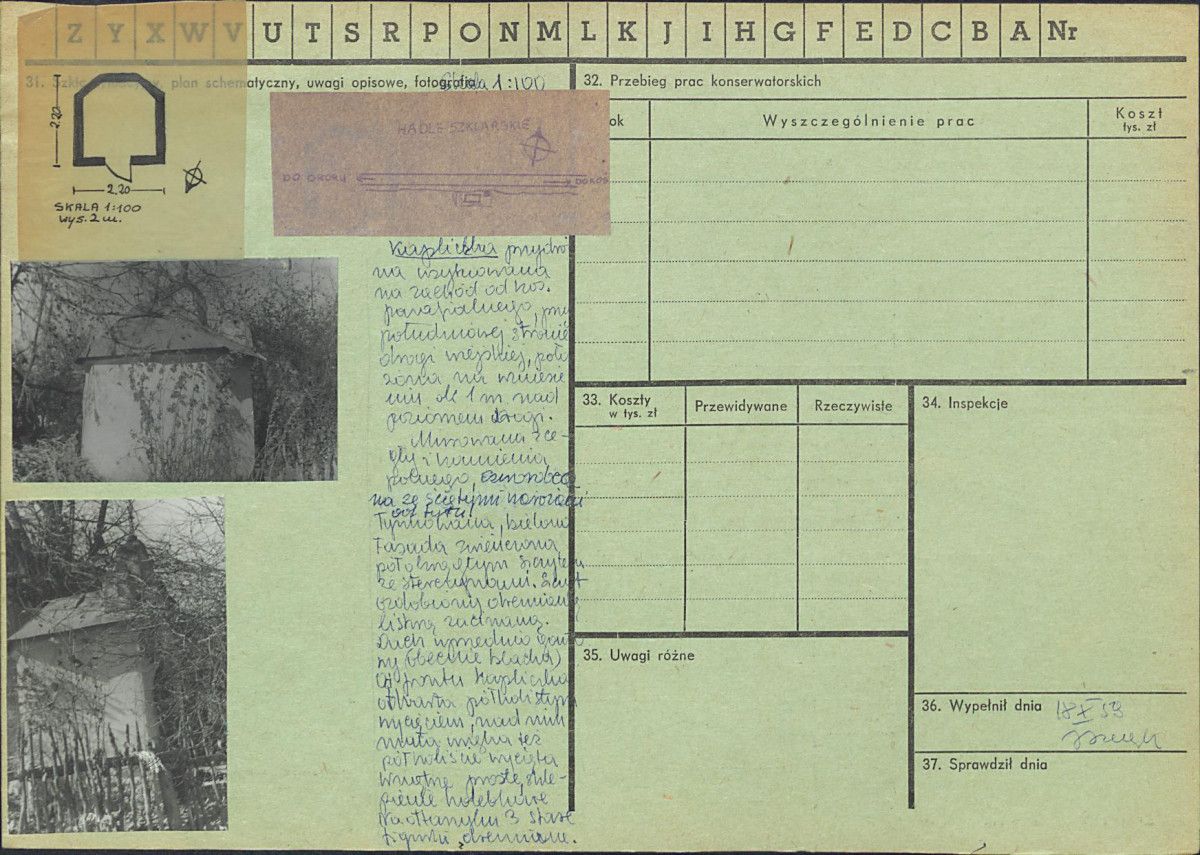 Z Y X W V U T S R P O N M L K J I H G F E D C B A Nr
matyczny, uwagi opisowe, fotografia
Skala 1:100
31.
plan sche
2,20
2,20
SKALA 1:100
wys. 2 m.
HADLE SZKLARSKIE
DO DWORU
DO KOŚ
Kapliczka przydro
żna usytuowana
na zachód od koś.
parafialnego, przy
południowej stronie
drogi wiejskiej, poło
żona na wzniesie
niu ok 1 m nad
poziomem drogi.
Murowana z ce-
gły i kamienia
polnego, czworobocz
na ze ściętymi narożami
od tyłu.
Tynkowana, bielona
Fasada zwieńczona
półokrągłym szczytem
ze sterczynami. Szczyt
ozdobiony drewnianą
listwą zacinaną.
Dach uprzednio gonto
wy (obecnie blacha)
Od frontu kapliczka
otwarta półkolistym
wycięciem, nad nim
mała wnęka też
półkoliście wycięta
Wnętrze proste, skle-
pienie kolebkowe
Na ołtarzyku 3 stare
figurki drewniane.
32. Przebieg prac konserwatorskich
ok
Wyszczególnienie prac
Koszt
tys. zł
33. Koszty
w tys. zł
Przewidywane
Rzeczywiste
34. Inspekcje
35. Uwagi różne
36. Wypełnił dnia
18 X 59
37. Sprawdził dnia